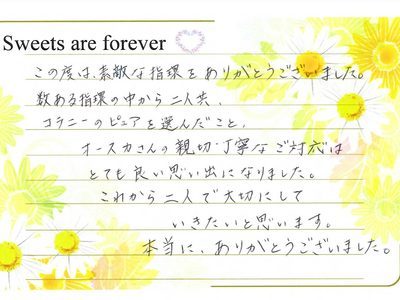 Sweets are forever
この度は、素敵な指環をありがとうございました。
数ある指環の中から二人共、
コラニーのピュアを選んだこと、
オースカさんの親切・丁寧なご対応は
とても良い思い出になりました。
これから二人で大切にして
いきたいと思います。
本当に、ありがとうございました。